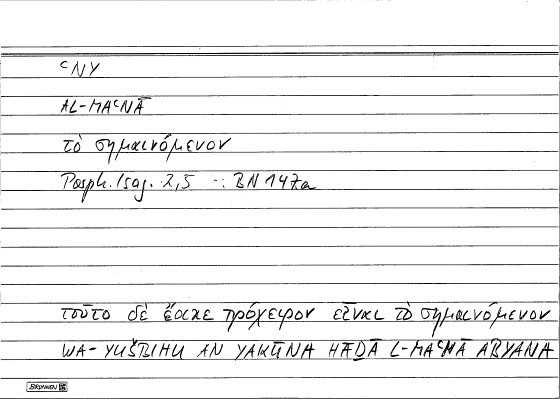 ʿNY
AL-MAʿNĀ
τὸ σημαινόμενον
Porph. Isag. 2,5 ∴ BN 147a
τοῦτο δὲ ἔοικε πρόχειρον εἶναι τὸ σημαινόμενον
WA-YUŠBIHU AN YAKŪNA HĀḎĀ L-MAʿNĀ ABYANA
BRUNNEN